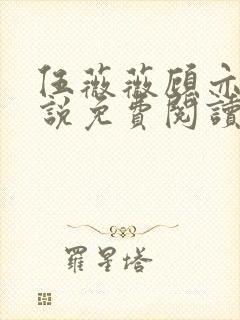 伍薇薇顾亦
說免費閱讀
羅星塔